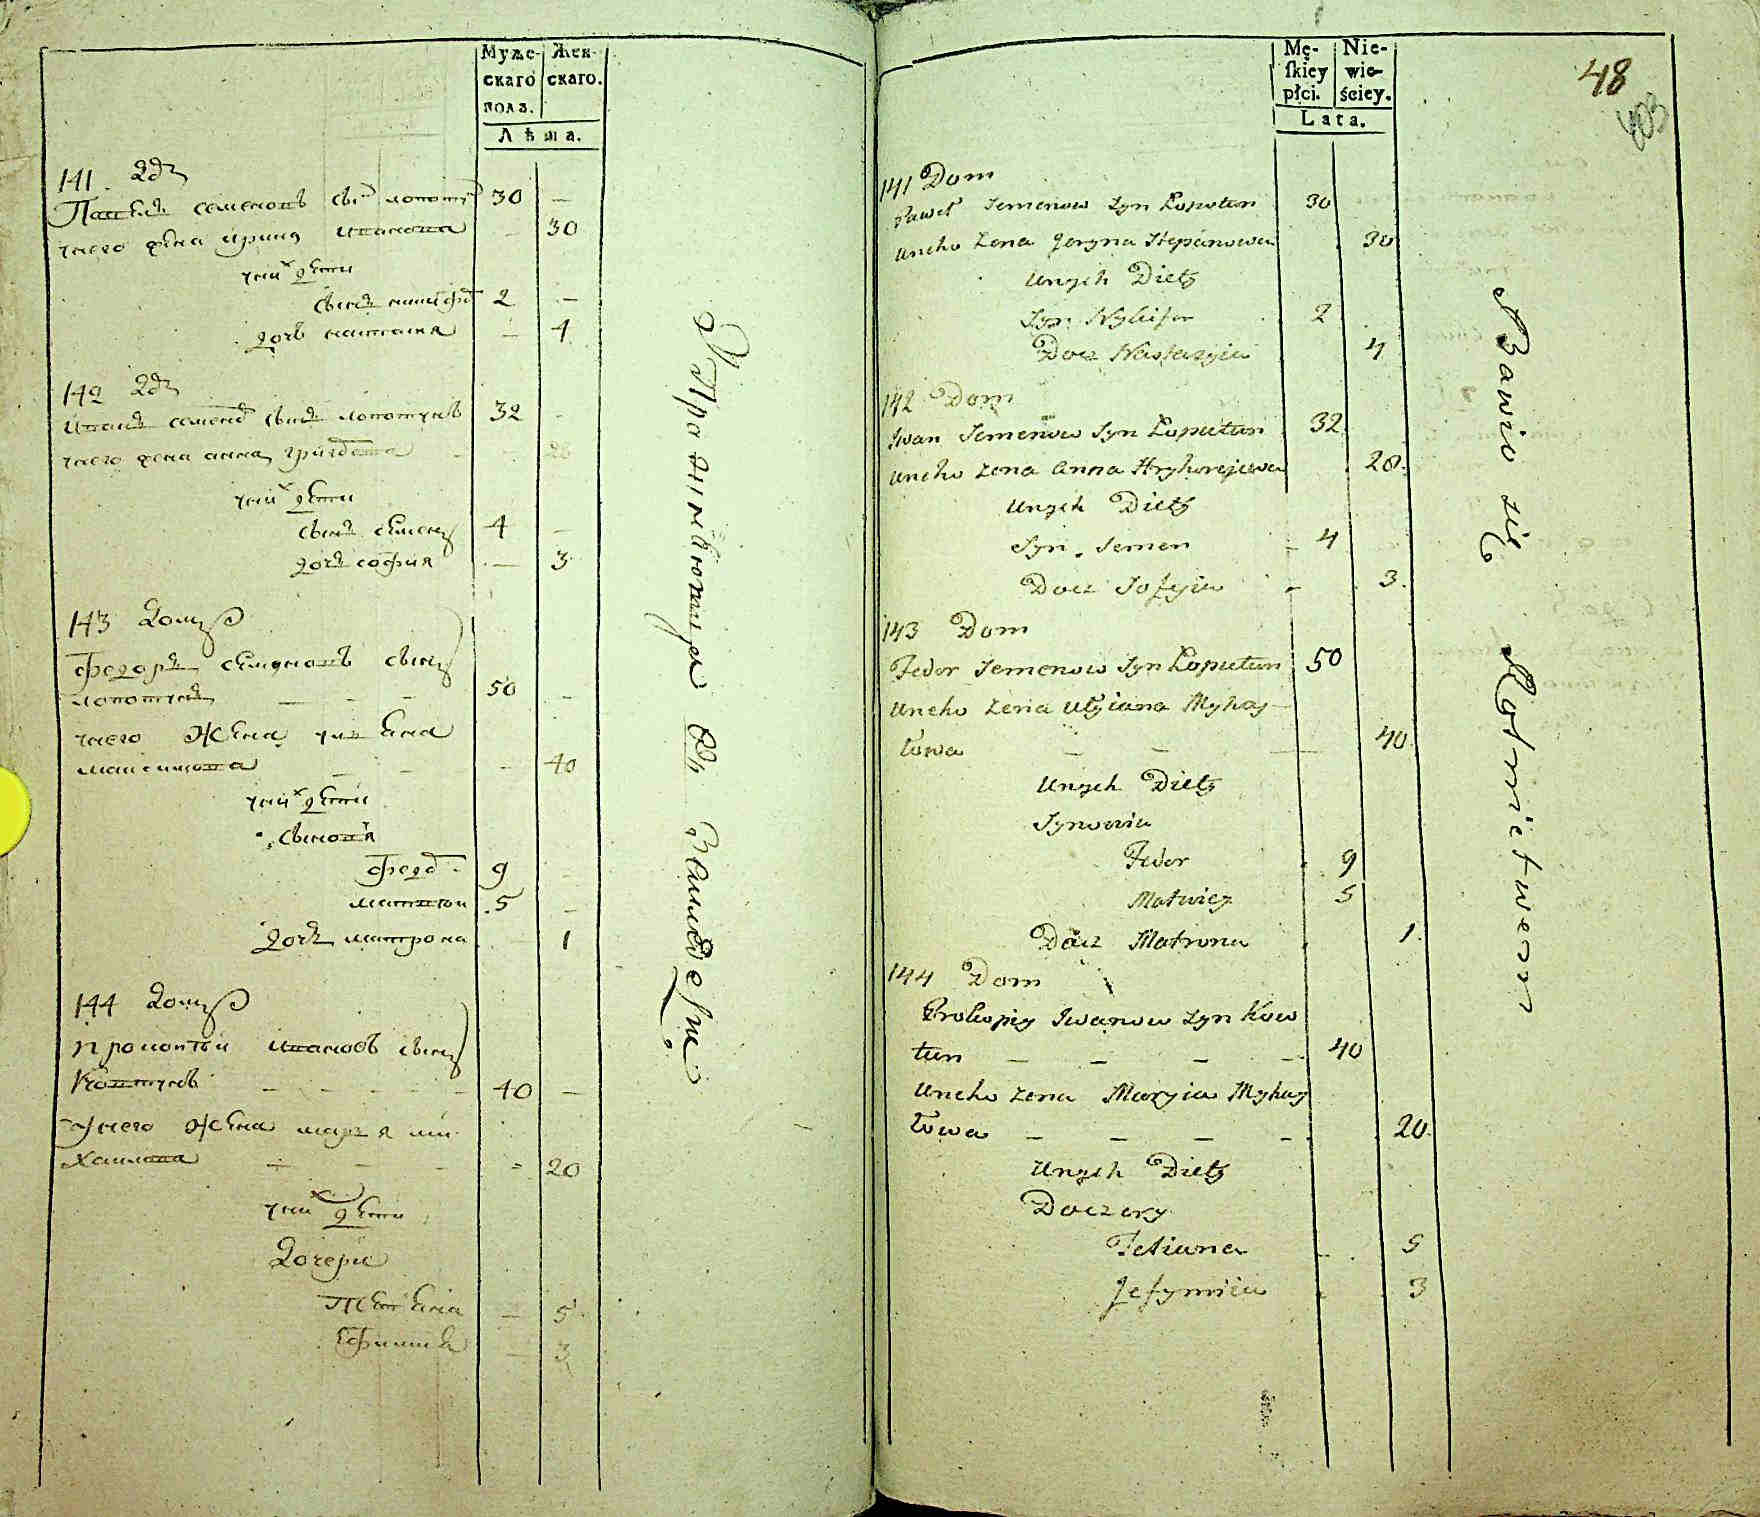 Муже- Жен-
скаго скаго.
полз.
Лѣта.
141 Д
Павелъ семеновъ сы лопоту 30 —
унего жена ирина — 30
уних дети
сынъ никифо 2 —
дочь настасия — 4
142 Д
иванъ семено сынъ лопотунъ 32 -
унего жена анна григо — 20
уних дети
сынъ семенъ 4 —
дочъ софия — 3
143 Домъ
федоръ семеновъ сынъ
лопотунъ — — — 50 —
унего жена улияна
максимова — — — 40
уних дети
сыновя
федо 9
матвей 5 —
дочъ матрона — 1
144 Домъ
Прокопъй ивановъ сынъ
Ковтунъ — — — — 40 —
Унего жена маръя ми
хаилова — — — = 20
уних дети
Дочери
Тетяна — 5
Ефимия — 3
Пропитываются От Земледелия
Mę- Nie-
skiey wie-
płci. ściey.
Lata.
48
403
141 Dom
Paweł Semenow Syn Łoputun 30
Uneho Zena Jeryna Stepanowa 30
Unych Diety
Syn Nykifor 2
Docz Nastazyia 4
142 Dom
Iwan Semenow Syn Łoputun 32
Uneho Zena Anna Hryhorejewa 20.
Unych Diety
Syn Semen 4
Docz Sofyia 3.
143 Dom
Fedor Semenow Syn Łoputun 50
Uneho Zena Ulyiana Myhay-
łowa — — — 40
Unych Diety
Synowia
Fedor 9
Matwiey 5
Docz Matrona 1.
144 Dom
Prokopiy Iwanow Syn Kow
tun — — — — 40
Uneho Zena Maryia Myhay
łowa — — — — 20.
Unych Diety
Doczery
Tetiana 5
Jefymiia 3
Bawio się Rolnictwem